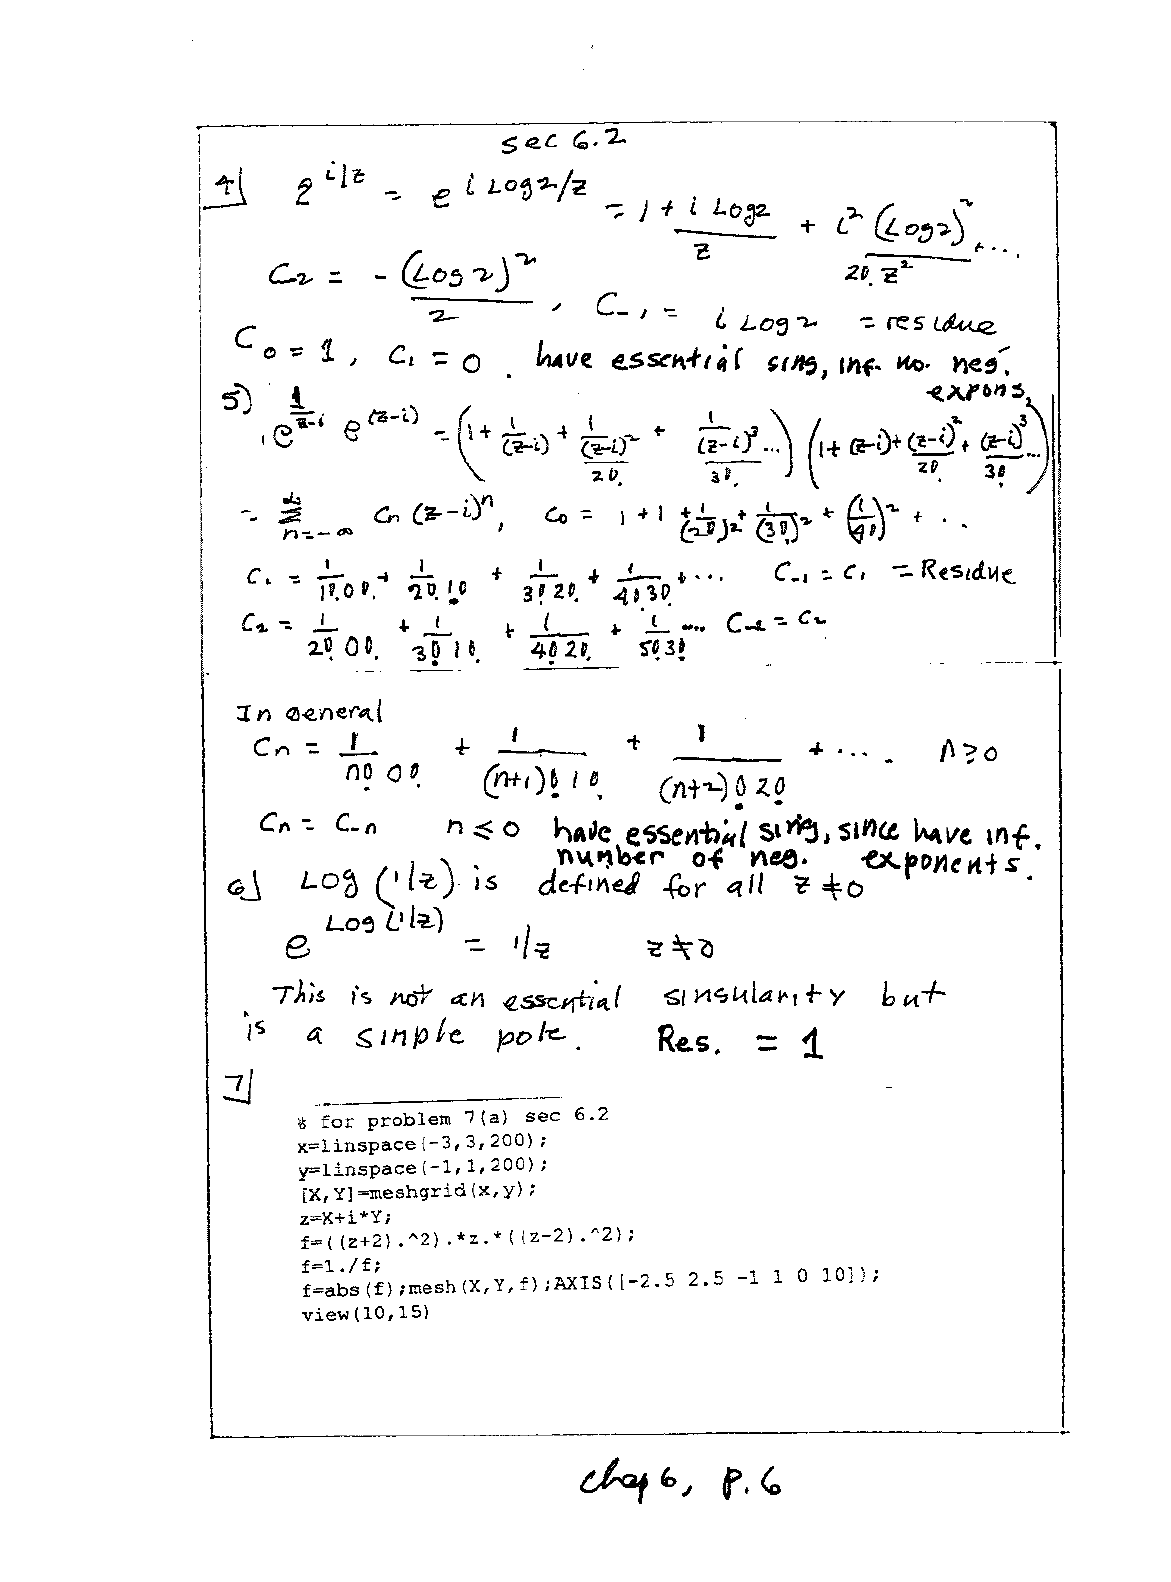 sec 6.2
4] 2^{i/z} = e^{i Log 2/z} = 1 + \frac{i Log 2}{z} + \frac{i^2 (Log 2)^2}{2!. z^2} + ...
C_{-2} = -\frac{(Log 2)^2}{2}, C_{-1} = i Log 2 = residue
C_0 = 1, C_1 = 0. have essential sing, inf. no. neg.
expons,
5) e^{\frac{1}{z-i}} e^{(z-i)} = (1 + \frac{1}{(z-i)} + \frac{1}{\frac{(z-i)^2}{2!}} + \frac{1}{\frac{(z-i)^3}{3!}} ...) (1 + (z-i) + \frac{(z-i)^2}{2!} + \frac{(z-i)^3}{3!} ...)
= \sum_{n=-\infty}^{\infty} C_n (z-i)^n, C_0 = 1 + 1 + \frac{1}{(2!)^2} + \frac{1}{(3!)^2} + (\frac{1}{4!})^2 + ...
C_1 = \frac{1}{1! 0!} + \frac{1}{2! 1!} + \frac{1}{3! 2!} + \frac{1}{4! 3!} + ... C_{-1} = C_1 = Residue
C_2 = \frac{1}{2! 0!} + \frac{1}{3! 1!} + \frac{1}{4! 2!} + \frac{1}{5! 3!} ... C_{-2} = C_2
In General
C_n = \frac{1}{n! 0!} + \frac{1}{(n+1)! 1!} + \frac{1}{(n+2)! 2!} + .... n ≥ 0
C_n = C_{-n} n ≤ 0 have essential sing, since have inf.
number of neg. exponents.
6] Log (1/z) is defined for all z ≠ 0
e^{Log (1/z)} = 1/z z ≠ 0
This is not an essential singularity but
is a simple pole. Res. = 1
7]
% for problem 7(a) sec 6.2
x=linspace(-3,3,200);
y=linspace(-1,1,200);
[X,Y]=meshgrid(x,y);
z=X+i*Y;
f=((z+2).^2).*z.*((z-2).^2);
f=1./f;
f=abs(f);mesh(X,Y,f);AXIS([-2.5 2.5 -1 1 0 10]);
view(10,15)
chap 6, p.6